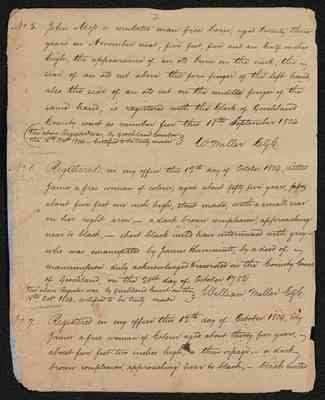 2
No 5. John Alsop a mulatto man free born, aged twenty three
years in November next, five feet, five and an half inches
high, the appearance of an old burn on the neck, the
scar of an old cut above the fore finger of the left hand
also the scar of an old cut on the middle finger of the
same hand, is registered with the Clerk of Goochland
County court as number five this 18th September 1804
The above Register exam. by Goochland County
the 15th Octr 1804 certified to be truly made
W. Miller Clk.
No 6. Registered in my office this 12th day of October 1804,
James a free woman of colour, aged about fifty five years,
about five feet one inch high, stout made, with a small scar
on her right arm — a dark brown complexion, approaching
near to black, — short black hair intermixed with grey
who was emancipated by James Hunnicutt, by a deed of
manumission duly acknowledged & recorded in the County Court
of Goochland, on the 20th day of October 1782
The above Register was by Goochland County
15th Octr 1804, certified to be truly made
William Miller Clk.
No 7. Registered in my office this 12th day of October 1804,
James a free woman of Colour aged about thirty five years,
about five feet two inches high, thin visage — a dark
brown complexion approaching near to black, — black